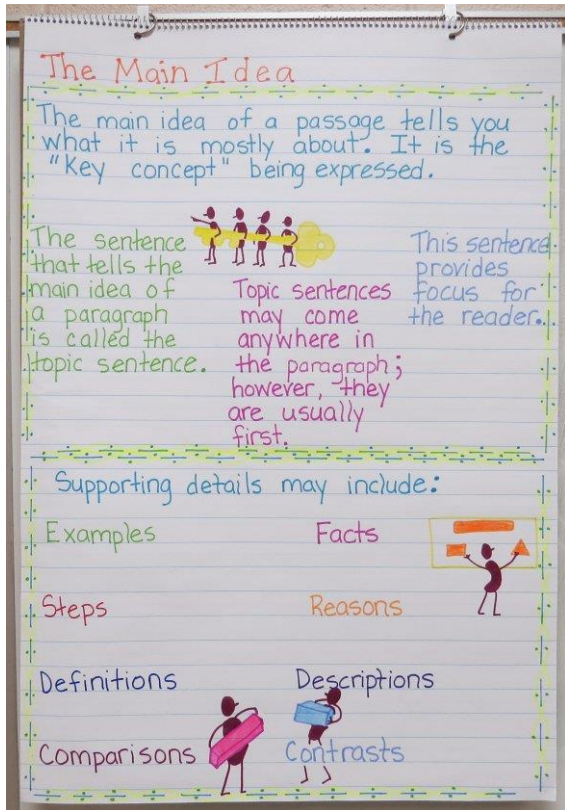 The Main Idea
The main idea of a passage tells you
what it is mostly about. It is the
"Key concept" being expressed.
The sentence
that tells the
main idea of
a paragraph
is called the
topic sentence.
Topic sentences
may come
anywhere in
the paragraph;
however, they
are usually
first.
This sentence
provides
focus for
the reader.
Supporting details may include:
Examples Facts
Steps Reasons
Definitions Descriptions
Comparisons Contrasts